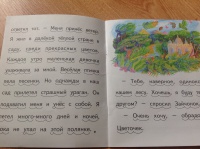 ответил он. — Меня принёс ветер.
Я жил в далёкой тёплой стране в
саду, среди прекрасных цветов.
Каждое утро маленькая девочка
радовалась за мной. Весёлая птичка
пела песенки. Но однажды в наш
сад прилетел страшный дракон. Он
подхватил меня и унёс с собой. Я
летел много-много дней и ночей,
пока не упал на этой полянке.
— Тебе, наверное, одиноко в
нашем лесу. Хочешь, я буду твоим
другом? — спросил Зайчонок.
— Очень хочу, — обрадовался
Цветочек.